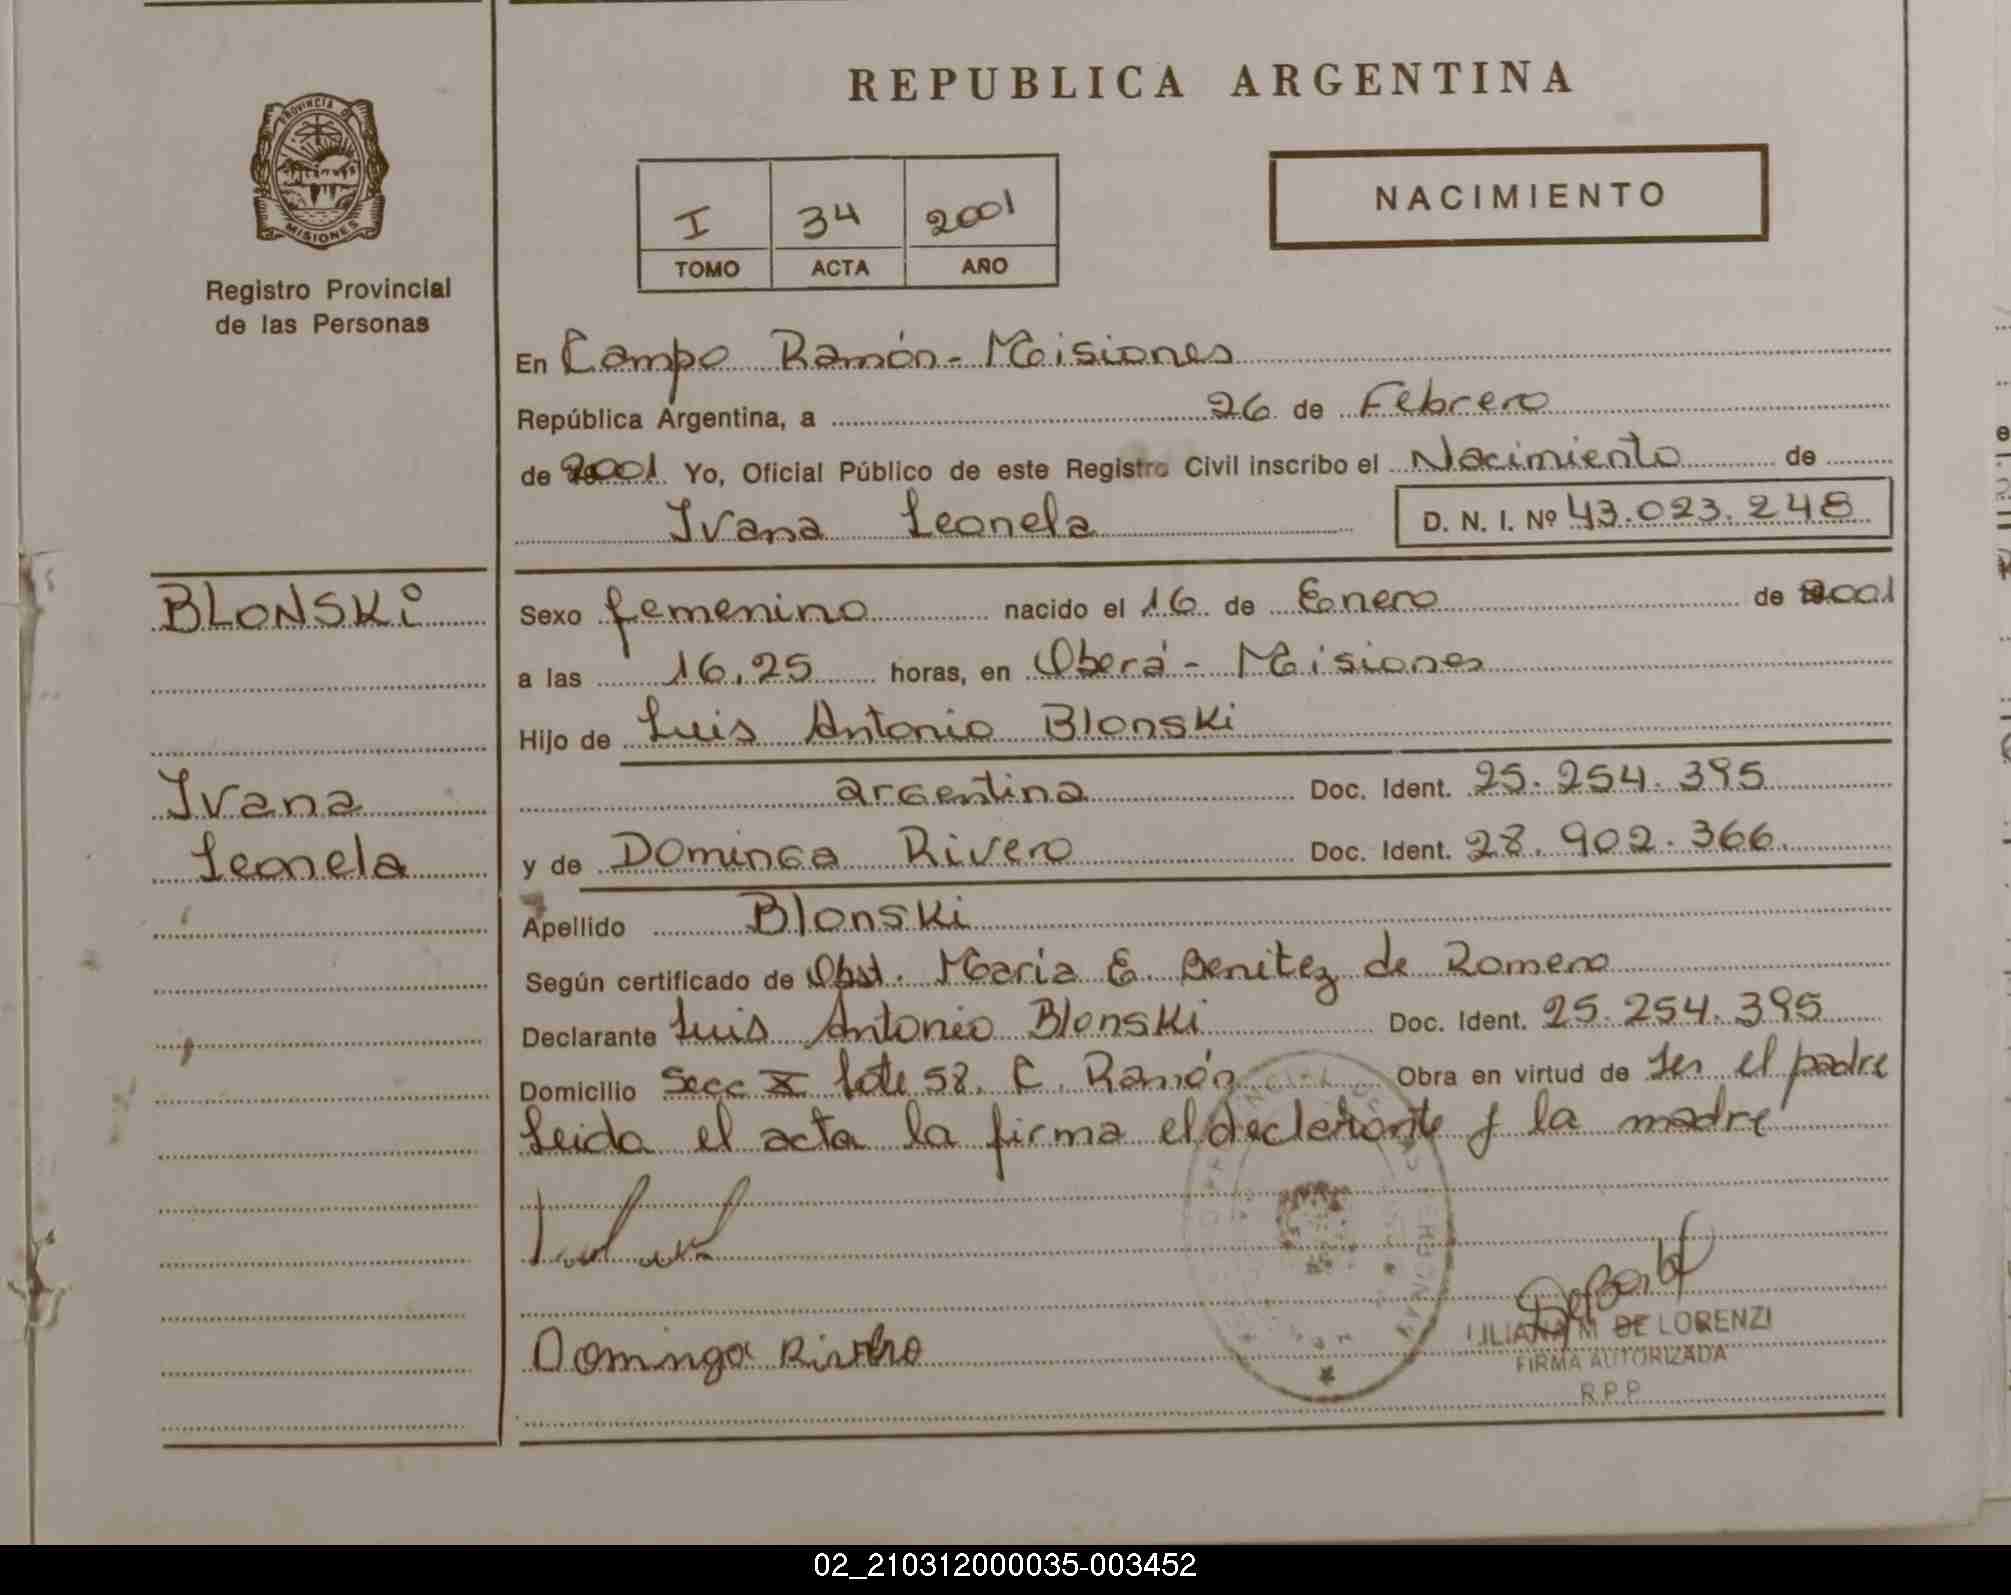 REPUBLICA ARGENTINA
PROVINCIA DE
MISIONES
Registro Provincial
de las Personas
I 34 2001
TOMO ACTA AÑO
NACIMIENTO
En Campo Ramón - Misiones
República Argentina, a 26 de Febrero
de 2001 Yo, Oficial Público de este Registro Civil inscribo el Nacimiento de
Ivana Leonela D. N. I. Nº 43.023.248
BLONSKi
Ivana
Leonela
Sexo femenino nacido el 16 de Enero de 2001
a las 16,25 horas, en Oberá - Misiones
Hijo de Luis Antonio Blonski
argentina Doc. Ident. 25.254.395
y de Dominga Rivero Doc. Ident. 28.902.366
Apellido Blonski
Según certificado de Obst. Maria E. Benitez de Romero
Declarante Luis Antonio Blonski Doc. Ident. 25.254.395
Domicilio Secc X lote 58. C. Ramón Obra en virtud de Ser el padre
Leida el acta la firma el declarante y la madre
Dominga Rivero
LILIANA M DE LORENZI
FIRMA AUTORIZADA
R.P.P.
02_210312000035-003452